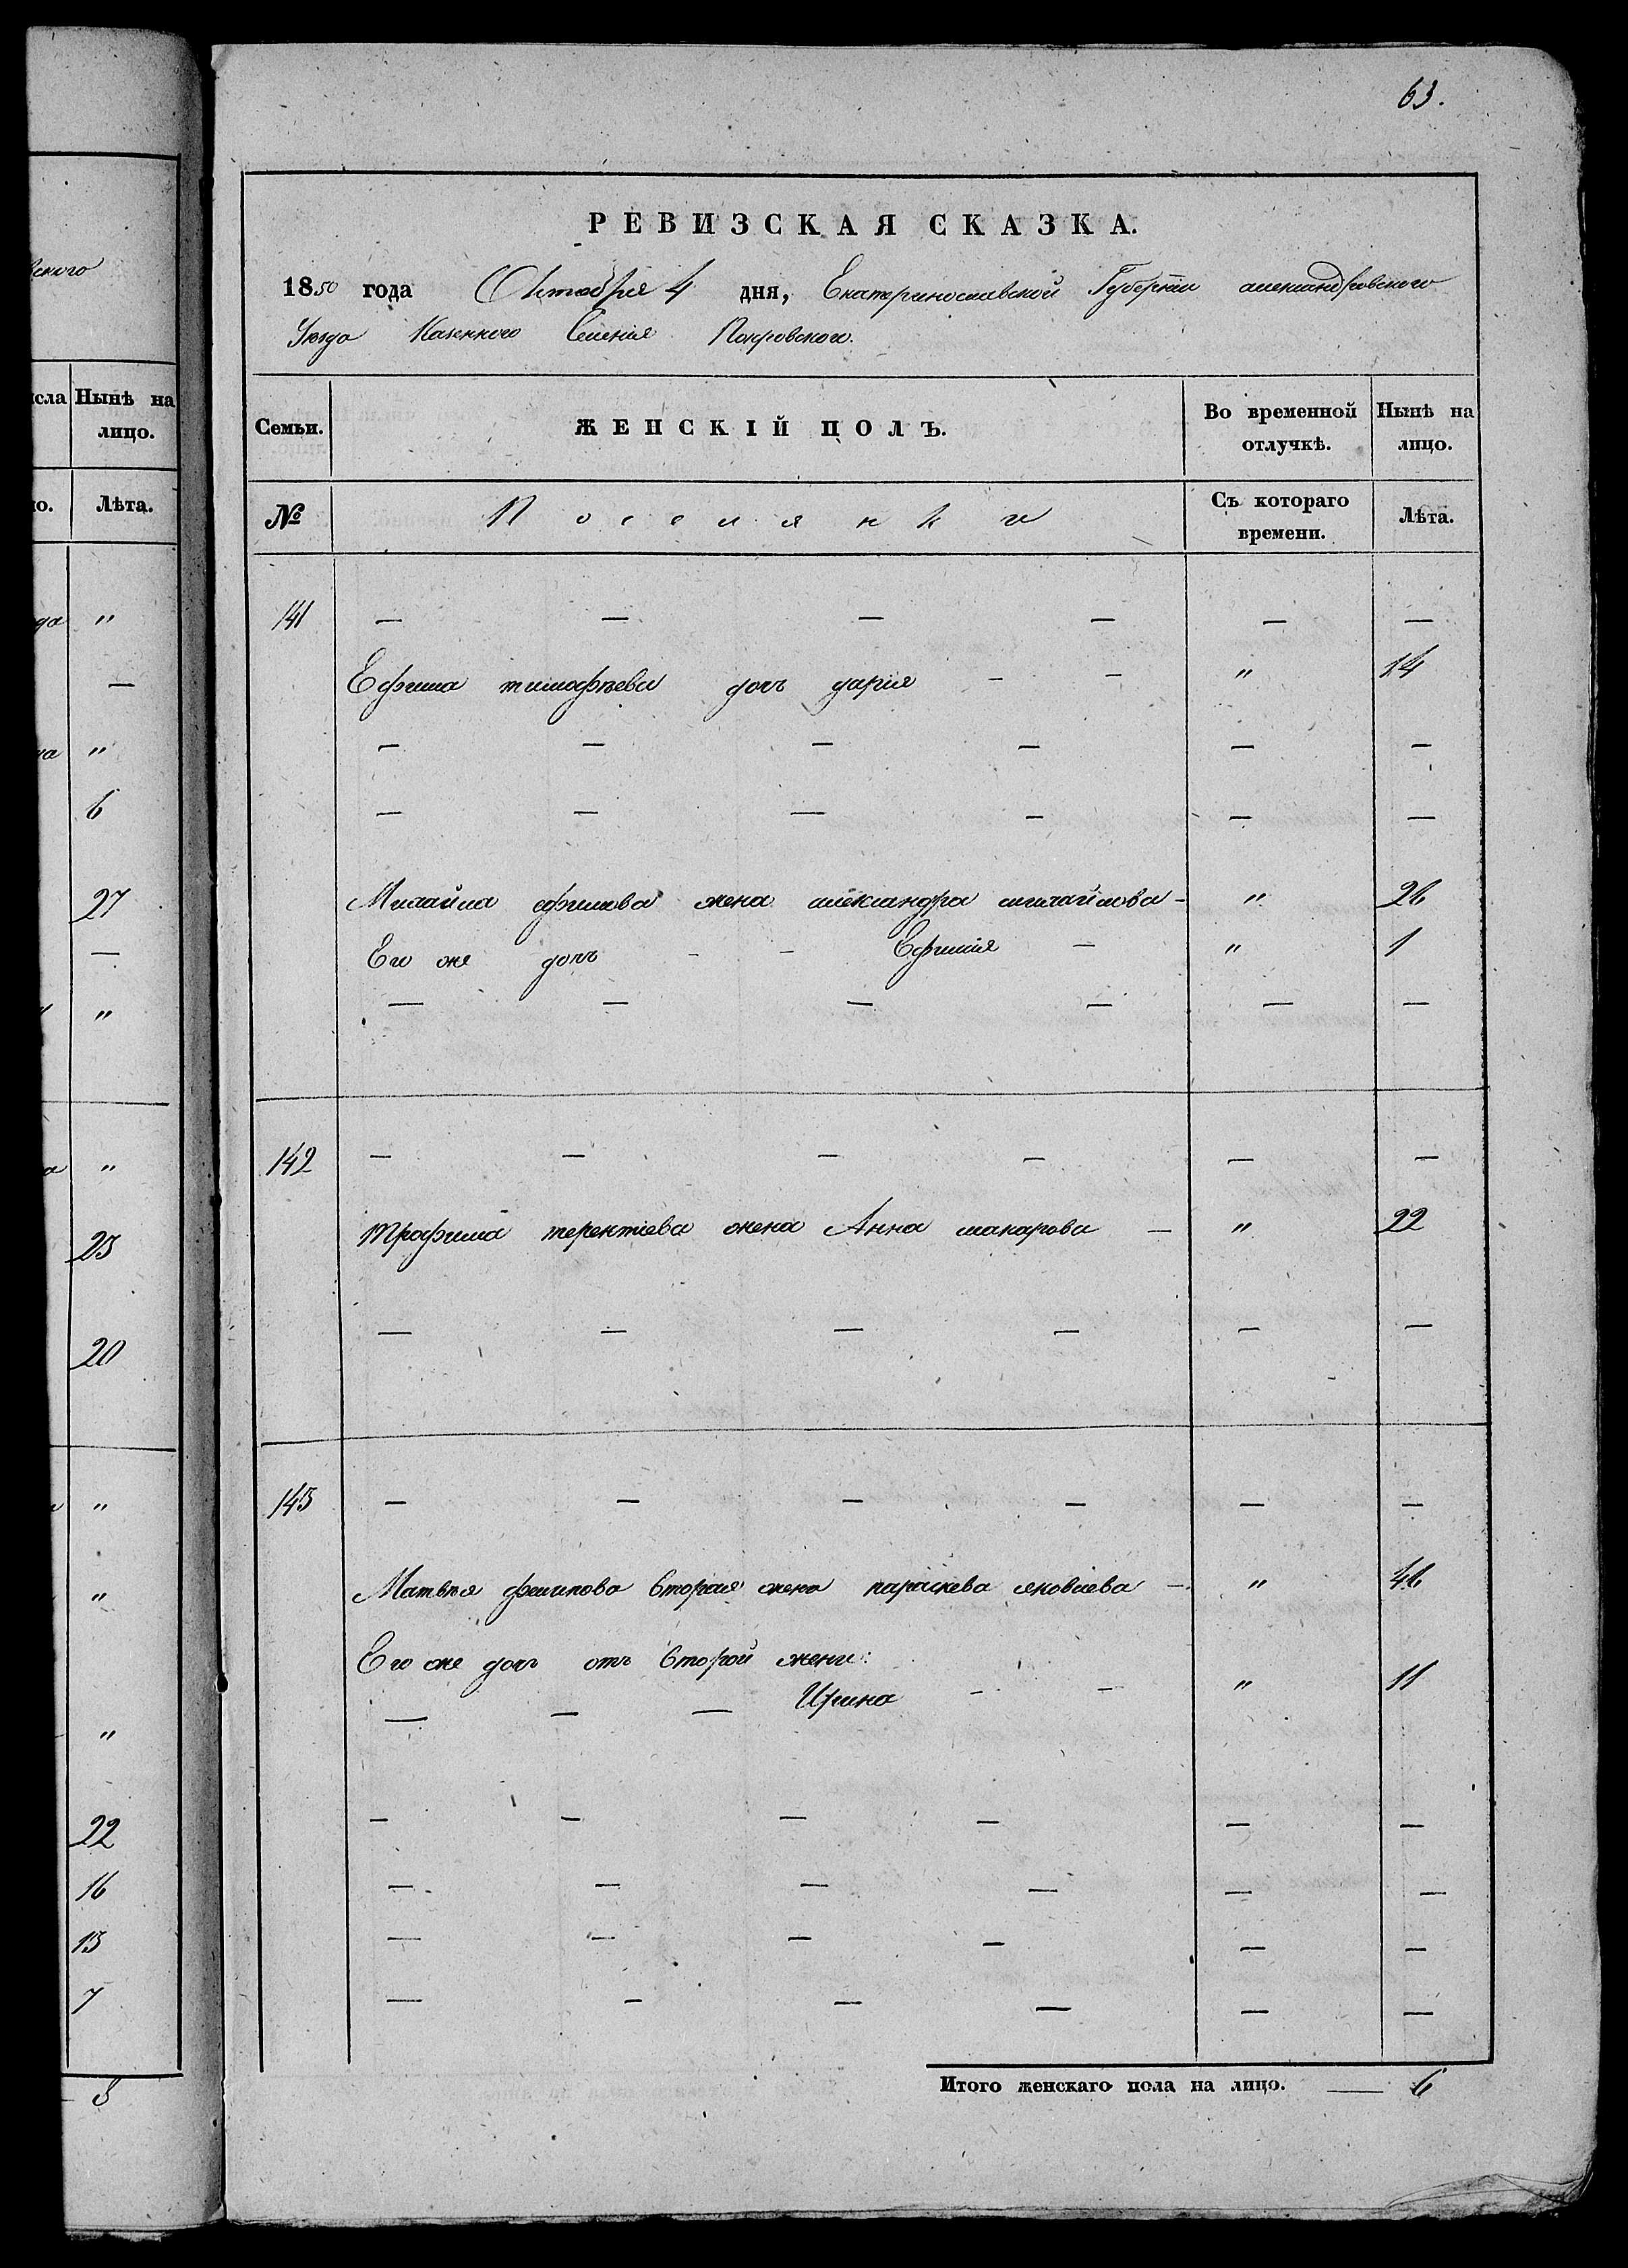 63.
РЕВИЗСКАЯ СКАЗКА.
1850 года Октября 4 дня, Екатеринославской Губернии александровского
Уезда Казенного Селения Покровского.
вского
исла Нынѣ на лицо.
но. Лѣта.
Семьи. ЖЕНСКІЙ ПОЛЪ. Во временной отлучкѣ. Нынѣ на лицо.
№ Поселянки Съ котораго времени. Лѣта.
141 — — — — — —
Ефима тимофѣева дочъ дария - - " 14
— — — — — —
— — — — — —
Михайла ефимова жена александра михайлова - " 26
Его же дочъ - - Ефимія - " 1
— — — — — —
142 — — — — — —
трофима терентіева жена Анна макарова — " 22
— — — — — —
143 — — — — — —
Матвѣя филипова вторая жена параскева яковлева - " 46
Его же дочъ отъ второй жени:
— — — Ирина - - " 11
— — — — — —
— — — — — —
— — — — — —
— — — — — —
Итого женскаго пола на лицо. — 6
да "
—
на "
6
27
—
"
а "
23
20
"
"
"
22
16
13
7
8